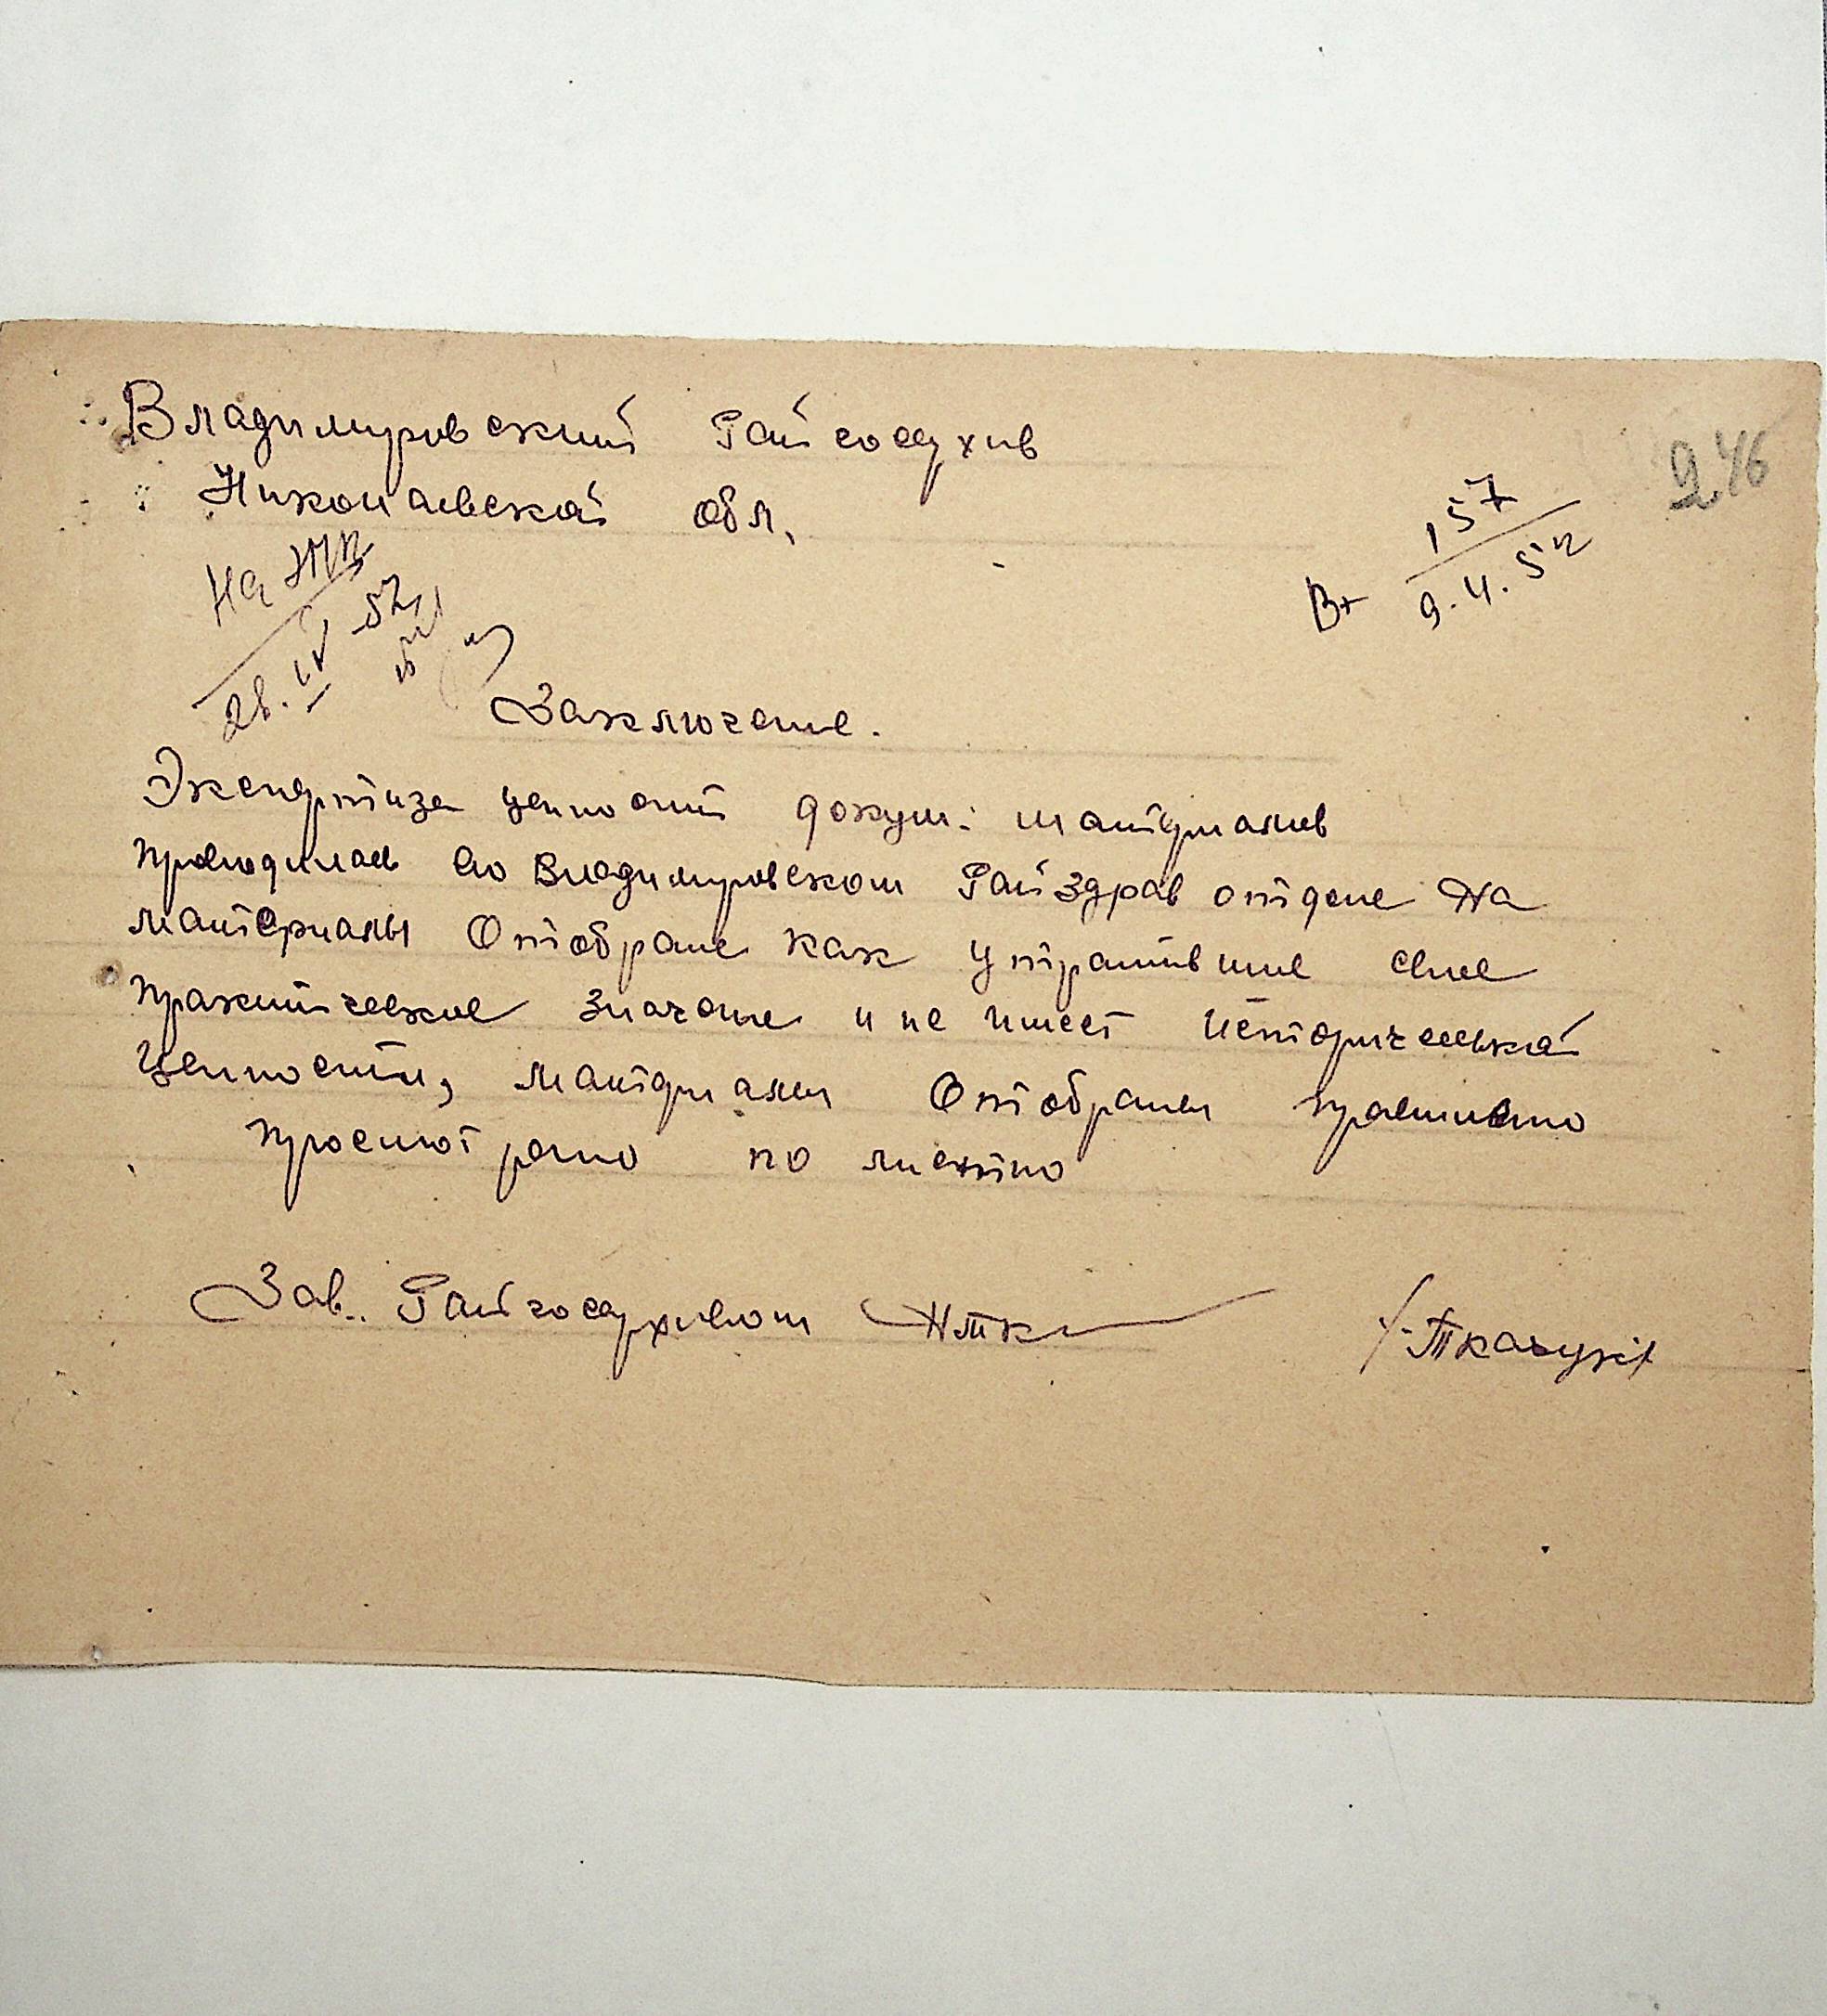 Владимировский Райгосархив
Николаевской обл.
246
Вх 157
9.4.52
На ЭПК
28.IV 52
Заключение.
Экспертиза ценности докум: материалов
проводилась во Владимировском Райздрав отделе На
материалы Отобране как утратившие свое
практическое значение и не имеет исторической
ценности, материалы Отобраны правильно
просмотрено по листно
Зав. Райгосархивом
/-Ткачук/